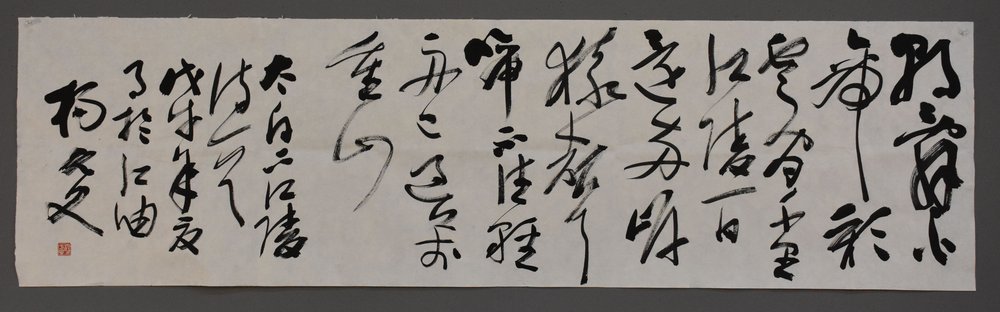 朝辞白
帝彩
雲間千里
江陵一日
還两岸
猿聲
啼不住輕
舟已過萬
重山
太白下江陵
诗一首
戊午年夏
写於江油
楊